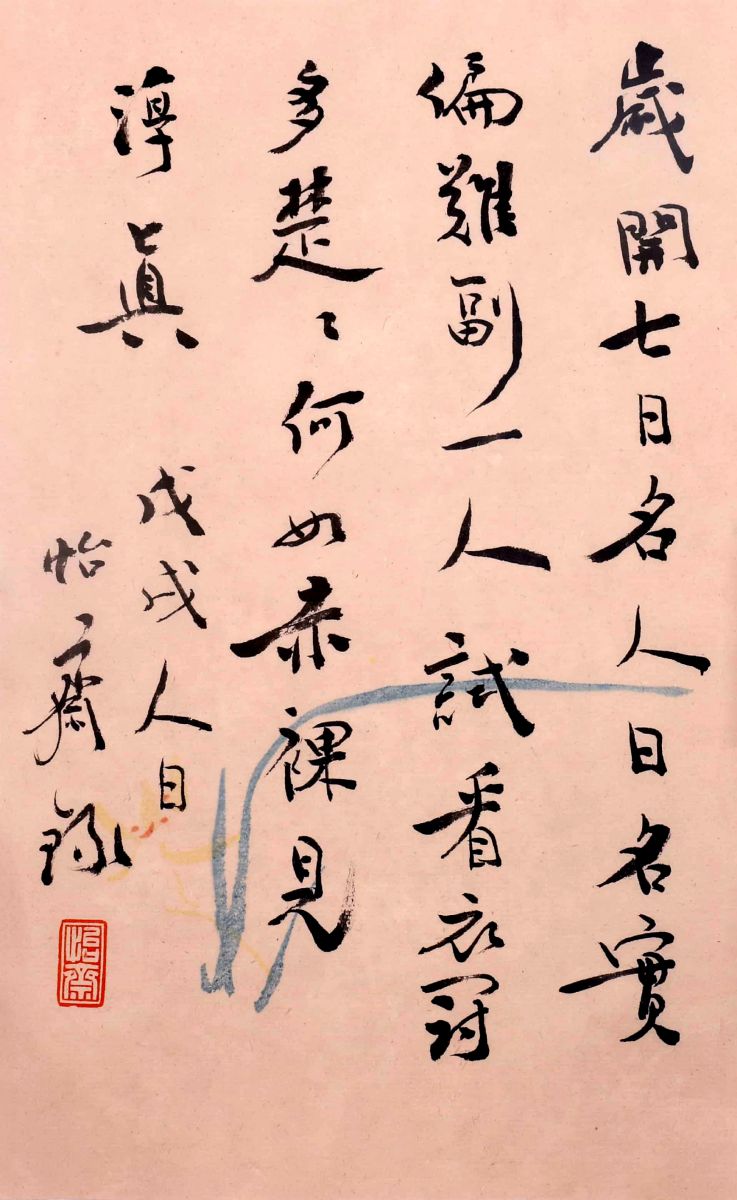 歲開七日名人日名實
偏難副一人試看衣冠
多楚〻何如赤裸見
淳真
戊戌人日
怡齋錄
怡齋